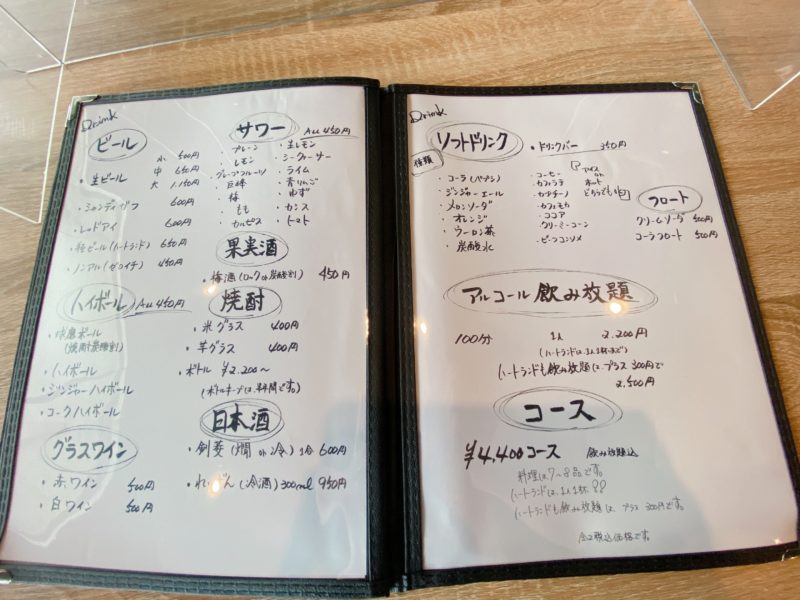 Drink
ビール
・生ビール 小 500円
中 650円
大 1,150円
・シャンディガフ 600円
・レッドアイ 600円
・瓶ビール(ハートランド) 650円
・ノンアル(ゼロイチ) 450円
ハイボール All 450円
・球磨ボール
(焼酎+炭酸割)
・ハイボール
・ジンジャーハイボール
・コークハイボール
グラスワイン
・赤ワイン 500円
・白ワイン 500円
サワー All 450円
・プレーン
・レモン
・グレープフルーツ
・巨峰
・梅
・もも
・カルピス
・生レモン
・シークヮーサー
・ライム
・青りんご
・ゆず
・カシス
・トマト
果実酒
・梅酒(ロックor炭酸割) 450円
焼酎
・米グラス 400円
・芋グラス 400円
・ボトル ¥2,200〜
(ボトルキープは、3ヶ月間です)
日本酒
・剣菱(燗 or 冷)1合 600円
・れいざん(冷酒)300ml 950円
Drink
ソフトドリンク
・ドリンクバー 350円
種類
・コーラ(ペプシ)
・ジンジャーエール
・メロンソーダ
・オレンジ
・ウーロン茶
・炭酸水
・コーヒー
・カフェラテ
・カプチーノ
・カフェモカ
・ココア
・クリーミーコーン
・ビーフコンソメ
アイス
or
ホット
どちらでも可
フロート
クリームソーダ 500円
コーラフロート 500円
アルコール飲み放題
100分 1人 2,200円
(ハートランドは、1人1杯まで)
ハートランドも飲み放題は、プラス300円で
2,500円
コース
¥4,400コース 飲み放題込
料理は、7〜8品です。
ハートランドは、1人1杯
ハートランドも飲み放題は、プラス300円です。
全て税込価格です。